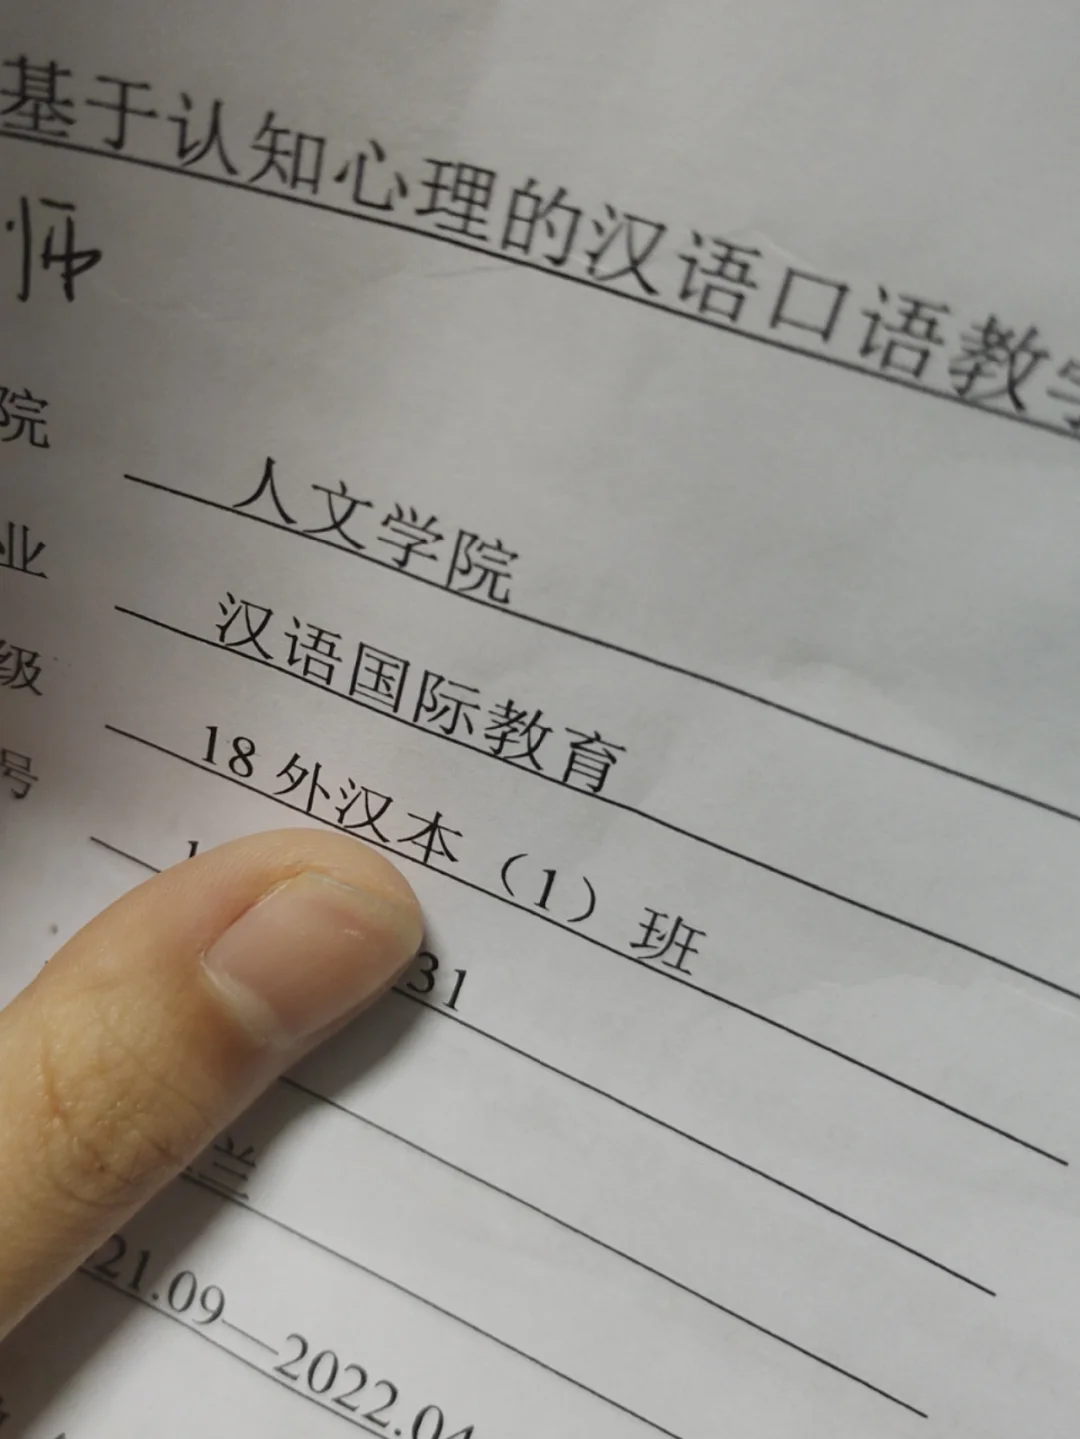 基于认知心理的汉语口语教学
师
院 人文学院
业 汉语国际教育
级 18 外汉本（1）班
号 31
兰
21.09—2022.04